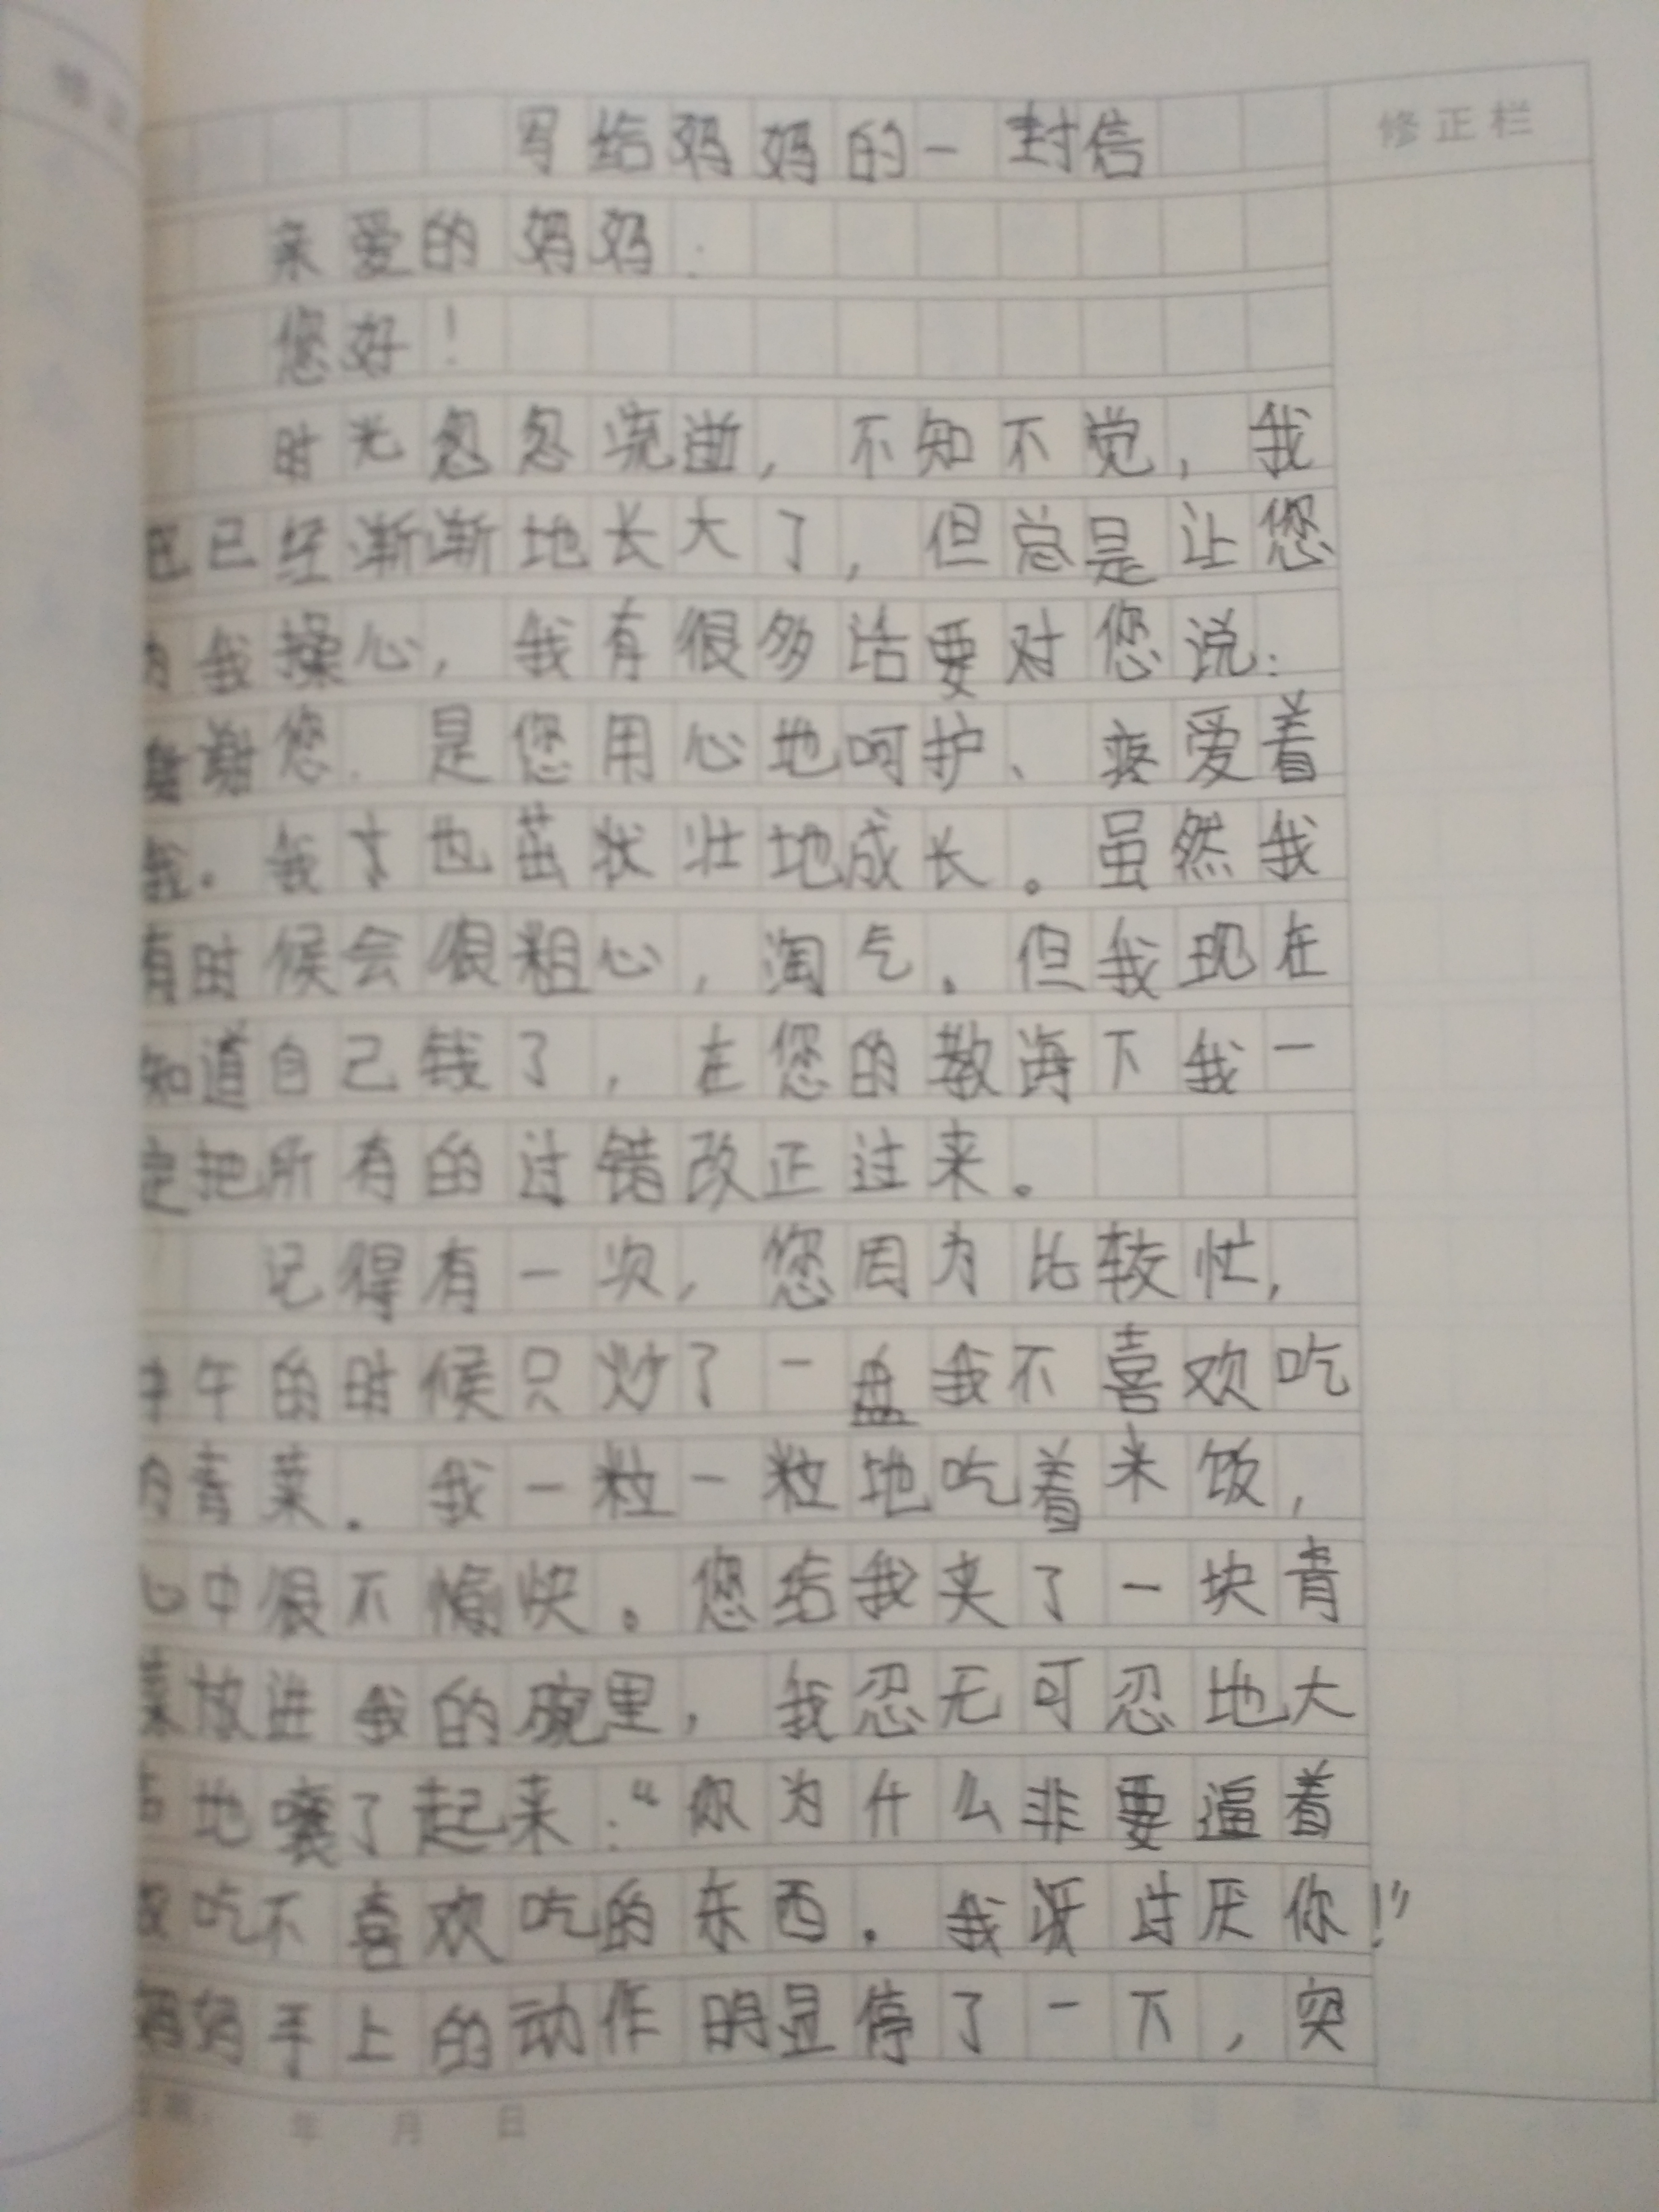 写给妈妈的一封信
修正栏
亲爱的妈妈:
您好!
时光忽忽流逝,不知不觉,我
已经渐渐地长大了,但总是让您
为我操心,我有很多话要对您说:
谢谢您.是您用心地呵护、疼爱着
我.我才也茁状壮地成长。虽然我
有时候会很粗心,淘气.但我现在
知道自己错了,在您的教诲下我一
定把所有的过错改正过来。
记得有一次,您因为比较忙,
中午的时候只炒了一盘我不喜欢吃
的青菜.我一粒一粒地吃着米饭,
心中很不愉快。您给我夹了一块青
菜放进我的碗里,我忍无可忍地大
声地嚷了起来:“你为什么非要逼着
我吃不喜欢吃的东西.我讨厌你!”
妈妈手上的动作明显停了一下,突
年 月 日